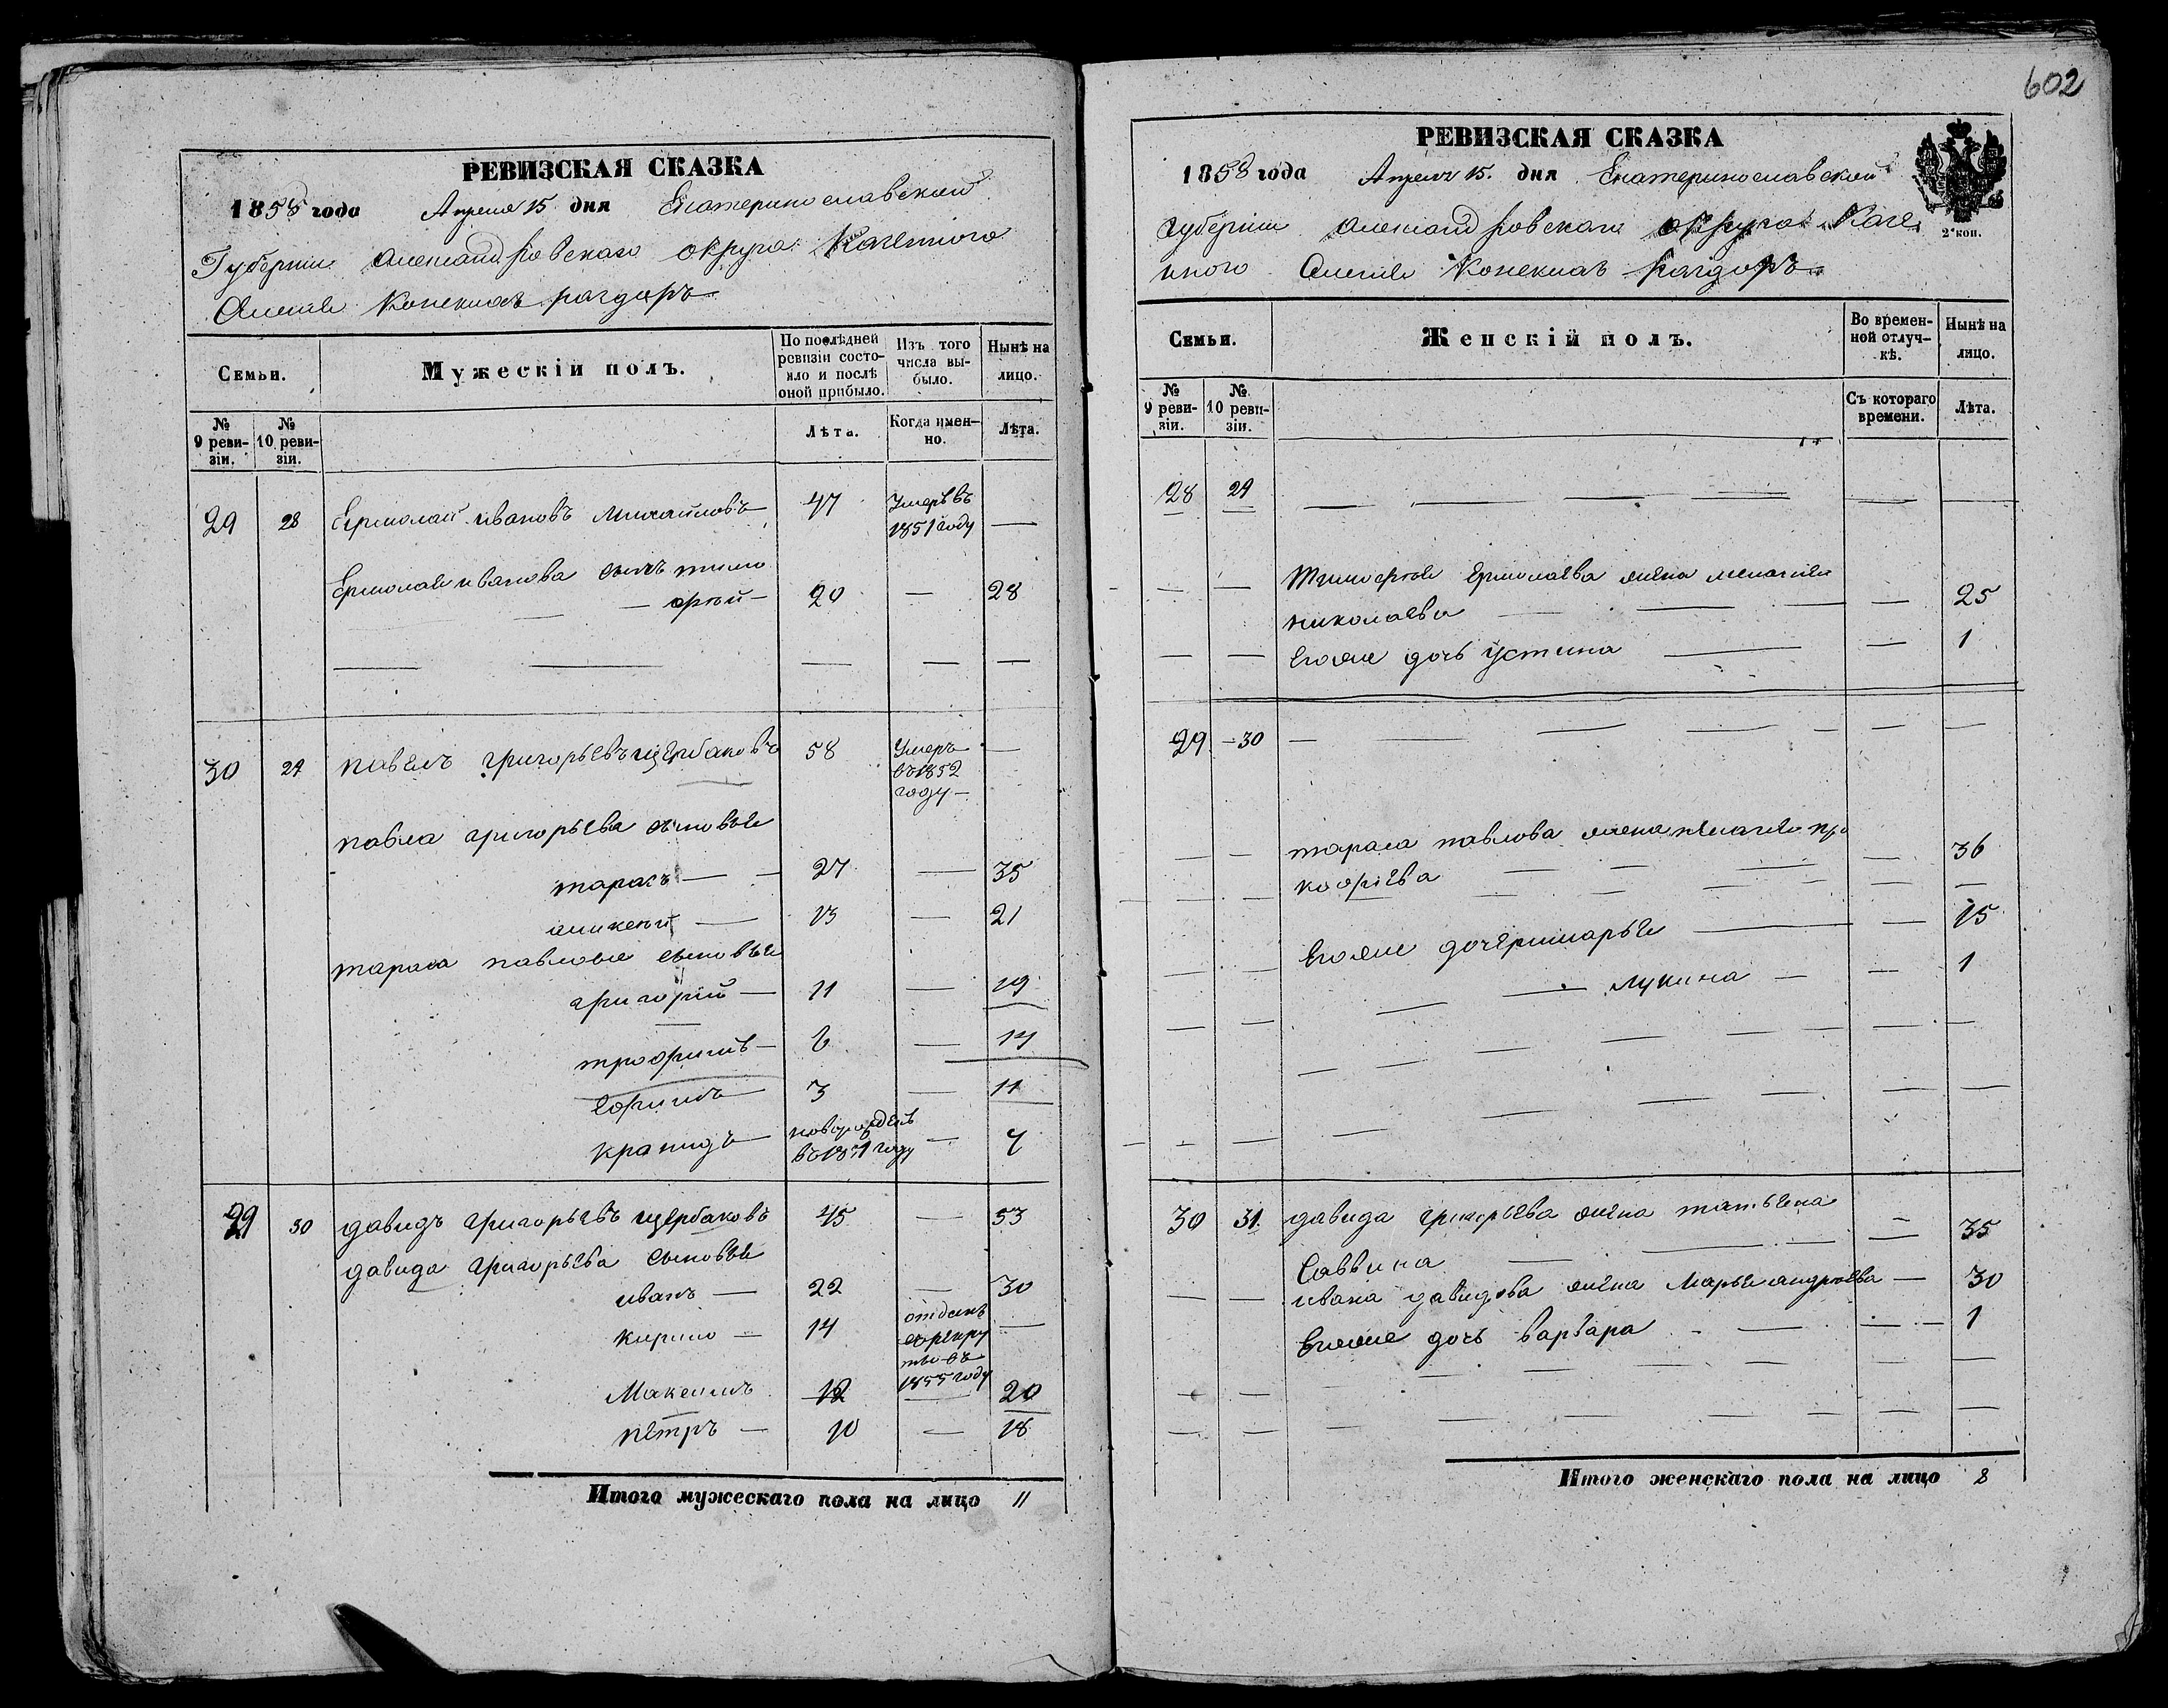 602
РЕВИЗСКАЯ СКАЗКА
1858 года Апреля 15 дня Екатеринославской
Губернии Александровскаго округа Казенного
Селенія Конскихъ раздоръ
Семьи.
Мужескій полъ.
По послѣдней ревизіи состояло и послѣ оной прибыло.
Изъ того числа выбыло.
Нынѣ на лицо.
№ 9 ревизіи.
№ 10 ревизіи.
Лѣта.
Когда именно.
Лѣта.
29 28 Ермолай ивановъ Михайловъ 47 Умеръ въ 1851 году —
Ермолая иванова сынъ тимо
— фѣй — 20 — 28
30 29 павелъ григорьевъ щербаковъ 58 Умеръ въ 1852 году — —
павла григорьева сыновья
тарасъ — 27 — 35
— 13 — 21
тараса павлова сыновья
григорій — 11 — 19
трофимъ — 6 — 14
ефимъ — 3 — 11
новорожденъ въ 1851 году — 7
29 30 давидъ григорьевъ щербаковъ 45 — 53
давида григорьева сыновья
иванъ — 22 — 30
кирило — 14 отданъ в рекруты въ 1855 году —
Максимъ 12 — 20
пётръ — 10 — 18
Итого мужескаго пола на лицо 11
РЕВИЗСКАЯ СКАЗКА
1858 года Апреля 15. дня Екатеринославской
губерніи александровскаго округа Казе
нного Селенія Конскихъ раздоръ
2я коп.
Семьи.
Женскій полъ.
Во временной отлучкѣ.
Нынѣ на лицо.
№ 9 ревизіи.
№ 10 ревизіи.
Съ котораго времени.
Лѣта.
28 29
Тимофея ермолаева жена меланія
николаева — 25
Егоже дочь устина — 1
29 30
тараса павлова жена пелагея про
кофіева — 36
Егоже дочери марья — 15
— лукина — 1
30 31 давида григорьева жена татьяна
Саввина — 35
ивана давидова жена Марья андреева — 30
Егоже дочь варвара — 1
Итого женскаго пола на лицо 8